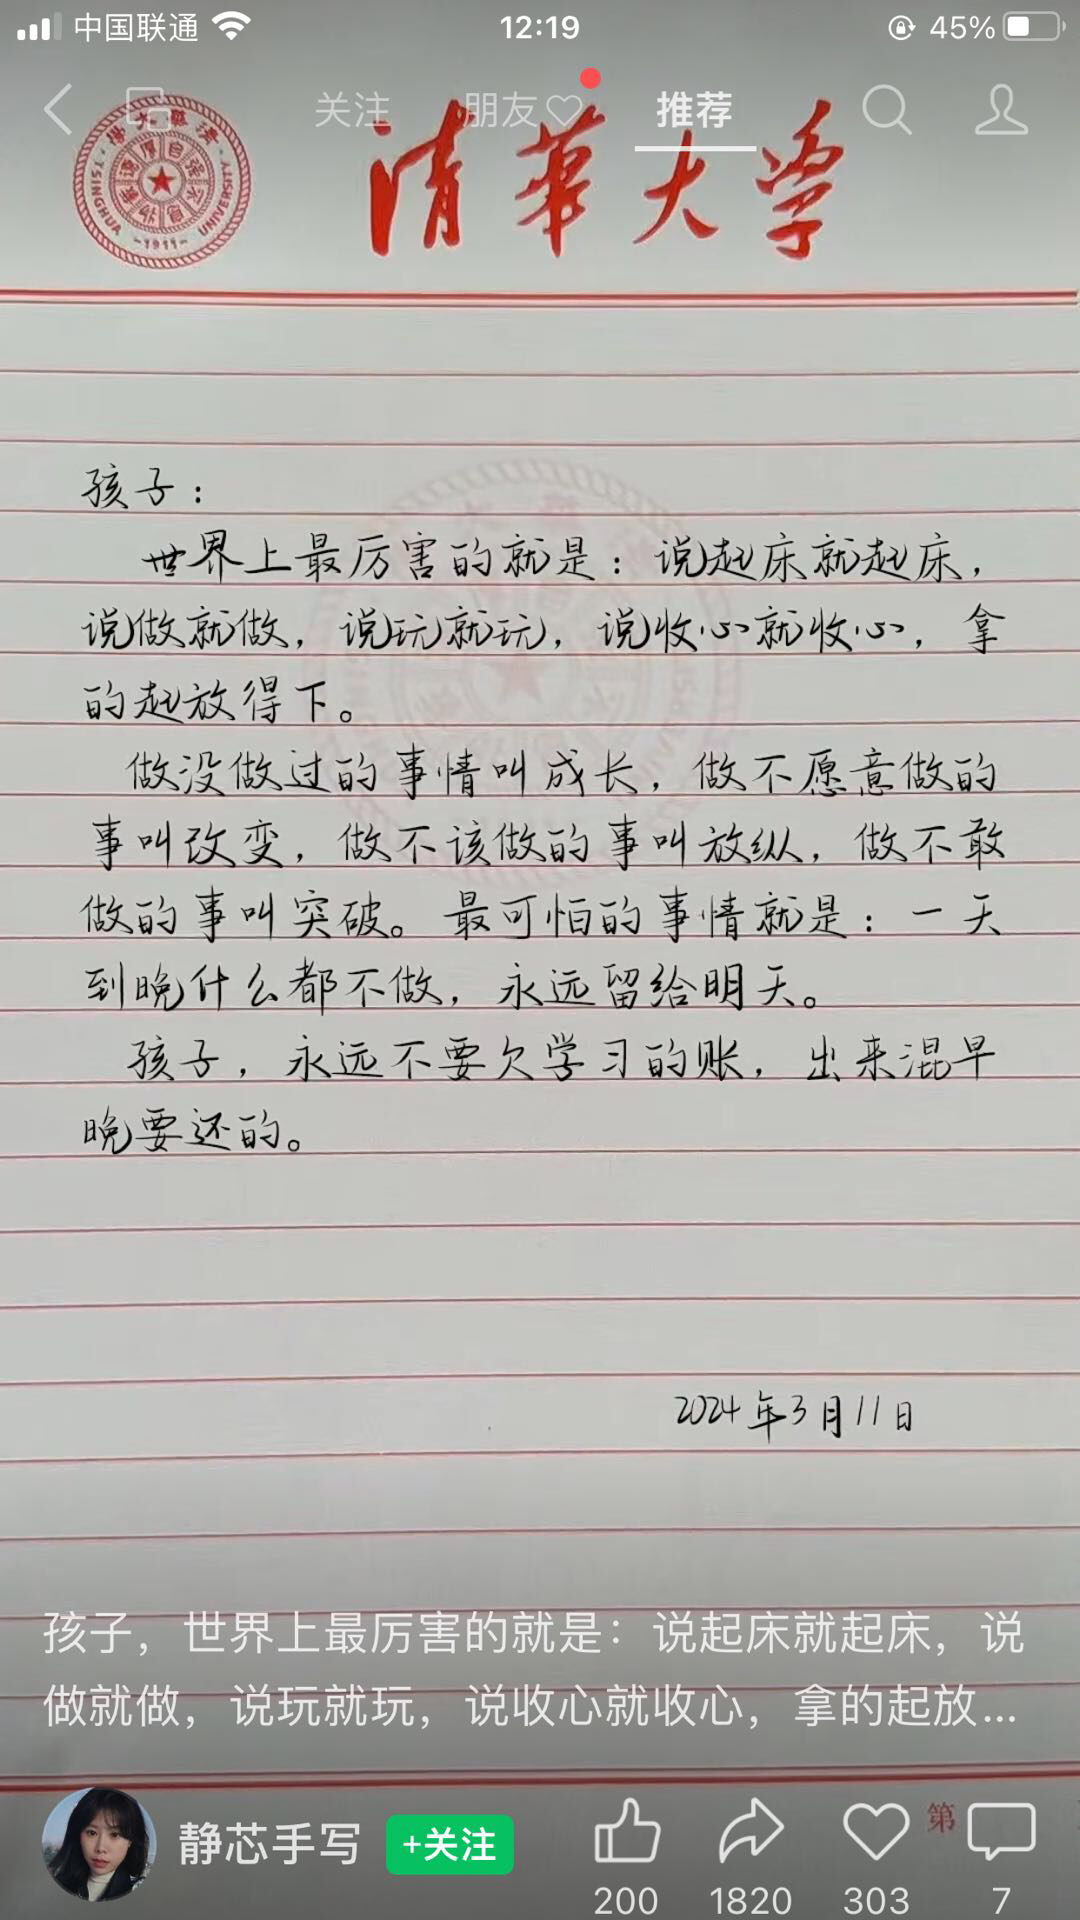 中国联通 12:19 45%
关注 朋友 推荐
清华大学
TSINGHUA UNIVERSITY
-1911-
孩子：
世界上最厉害的就是：说起床就起床，
说做就做，说玩就玩，说收心就收心，拿
的起放得下。
做没做过的事情叫成长，做不愿意做的
事叫改变，做不该做的事叫放纵，做不敢
做的事叫突破。最可怕的事情就是：一天
到晚什么都不做，永远留给明天。
孩子，永远不要欠学习的账，出来混早
晚要还的。
2024年3月11日
孩子，世界上最厉害的就是：说起床就起床，说
做就做，说玩就玩，说收心就收心，拿的起放...
静芯手写 +关注
第
200 1820 303 7